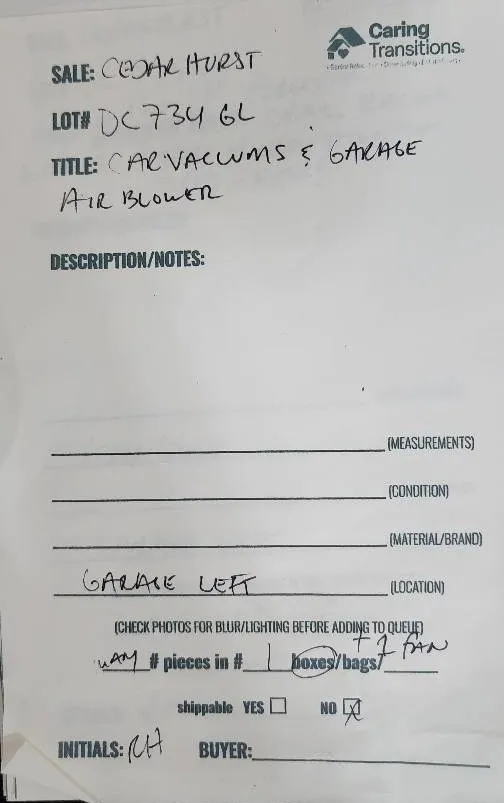 Caring
Transitions.
SALE: CEDAR HURST
LOT# DC734 GL
TITLE: CAR VACCUMS & GARAGE
AIR BLOWER
DESCRIPTION/NOTES:
(MEASUREMENTS)
(CONDITION)
(MATERIAL/BRAND)
GARAGE LEFT (LOCATION)
(CHECK PHOTOS FOR BLUR/LIGHTING BEFORE ADDING TO QUEUE)
+ 1 FAN
# pieces in # 1 boxes/bags/
shippable YES NO
INITIALS: RH BUYER: